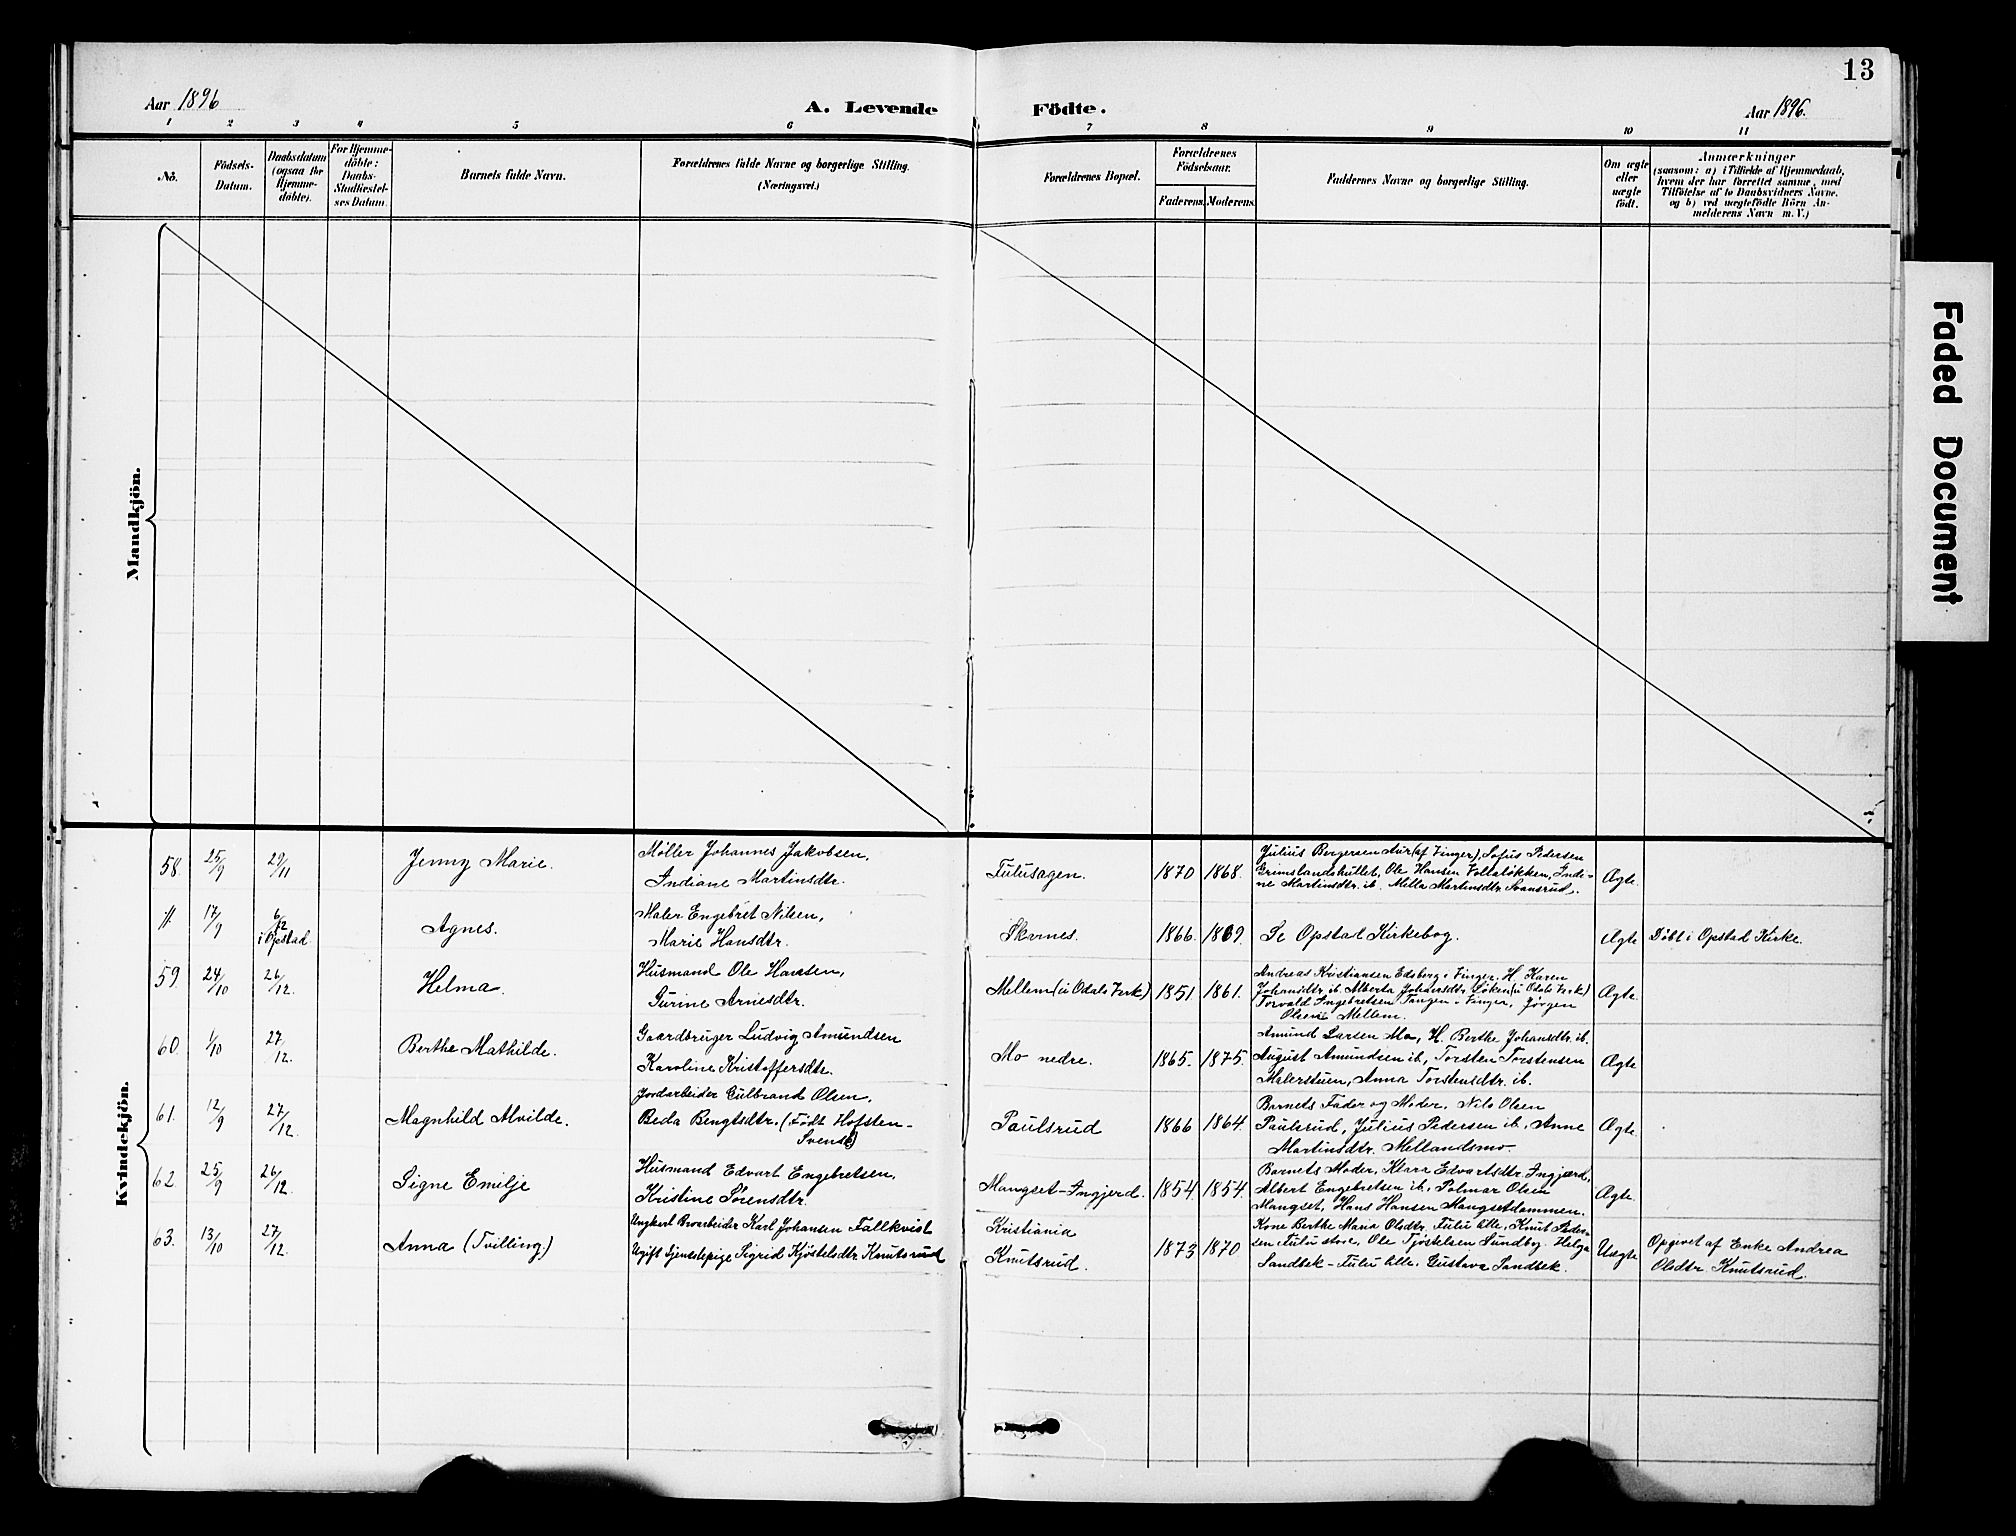 13
Aar 1896
A. Levende
Födte.
Aar 1896.
1 2 3 4 5 6 7 8 9 10 11
No.
Födsels-
Datum.
Daabsdatum
(ogsaa for
Hjemme-
döbte).
For Hjemme-
döbte:
Daabs-
Stadfæstel-
ses Datum.
Barnets fulde Navn.
Forældrenes fulde Navne og borgerlige Stilling.
(Næringsvei.)
Forældrenes Bopæl.
Forældrenes
Födselsaar.
Faderens. Moderens.
Faddernes Navne og borgerlige Stilling.
Om ægte
eller
uægte
födt.
Anmærkninger
(saasom: a) i Tilfælde af Hjemmedaab,
hvem der har forrettet samme, med
Tilföielse af to Daabsvidners Navne.
og b) ved uægtefödte Börn An-
melderens Navn m. V.)
Mandkjön.
Kvindekjön.
58. 25/9 29/11 Jenny Marie.
Møller Johannes Jakobsen,
Indiane Martinsdtr.
Fulusagen. 1870 1868.
Julius Bergersen Aur (af Vinger), Sofus Pedersen
Grimslandshullet, Ole Hansen Vollaløkken, Indi-
ne Martinsdtr. ib. Milla Martinsdtr. Svansrud.
Ægte.
17/9 6/12
i Opstad
Agnes.
Maler Engebret Nilsen,
Marie Hansdtr.
Skirnes. 1866. 1869. Se Opstad Kirkebog. Ægte Døbt i Opstad Kirke.
59. 24/10 26/12. Helma.
Husmand Ole Hansen,
Gurine Arnesdtr.
Mellem (ü Odals Verk) 1851 1861.
Andreas Kristiansen Edsberg i Vinger. H. Karen
Johansdtr. ib. Alberta Johansdtr. Løken (ü Odals Verk)
Torvald Ingebretsen Tangen i Vinger, Jørgen
Olsen Mellem.
Ægte.
60. 1/10 27/12. Berthe Mathilde.
Gaardbruger Ludvig Amundsen
Karoline Kristoffersdtr.
Mo nedre. 1865. 1875.
Amund Larsen Mo, H. Berthe Johansdtr. ib.
August Amundsen ib., Torsten Torstensen
Malerstuen, Anna Torstensdtr. ib.
Ægte
61. 12/9 27/12. Magnhild Alvilde.
Jordarbeider Gulbrand Olsen,
Beda Bengtsdtr. (Født Hofsten-
Svensk)
Paulsrud 1866 1864.
Barnets Fader og Moder, Nils Olsen
Paulsrud, Julius Pedersen ib., Anne
Martinsdtr. Mellandsmo.
Ægte.
62 25/9 26/12. Signe Emilje
Husmand Edvart Engebretsen,
Kristine Sørensdtr.
Mangset-Ingjerd. 1854 1854.
Barnets Moder, Klara Edvartsdtr. Ingjærd,
Albert Engebretsen ib., Polmar Olsen
Mangset, Hans Hansen Mangsetdammen.
Ægte.
63. 13/10 27/12. Anna (Tvilling)
Ungkarl Broarbeider Karl Johansen Fallkvist
Ugift Tjenestepige Sigrid Kjøstelsdtr Knutsrud
Kristiania
Knutsrud. 1873 1870
Kone Berthe Maria Olsdtr. Fulu lille, Knut Peder-
sen Fulu store, Ole Tjøstelsen Sundby. Helga
Sandbek - Fulu lille. Gustava Sandbek.
Uægte
Opgivet af Enke Andrea
Olsdtr Knutsrud.
Faded Document